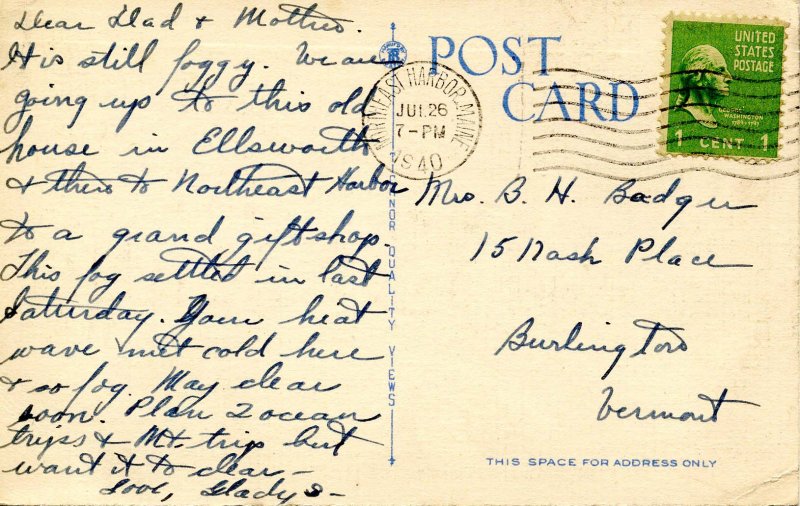 Dear Dad & Mother.
It is still foggy. We are
going up to this old
house in Ellsworth
& then to Northeast Harbor
to a grand gift shop.
This fog settled in last
Saturday. Your heat
wave met cold here
& so fog. May clear
soon. Plan 2 ocean
trips & Mt. trip but
want it to clear -
Love, Gladys -
POST
CARD
NORTHEAST HARBOR, MAINE
JUL 26
7-PM
1940
UNITED
STATES
POSTAGE
WASHINGTON
1 CENT 1
Mrs. B. H. Badger
15 Nash Place
Burlington
Vermont
QUALITY VIEWS
THIS SPACE FOR ADDRESS ONLY